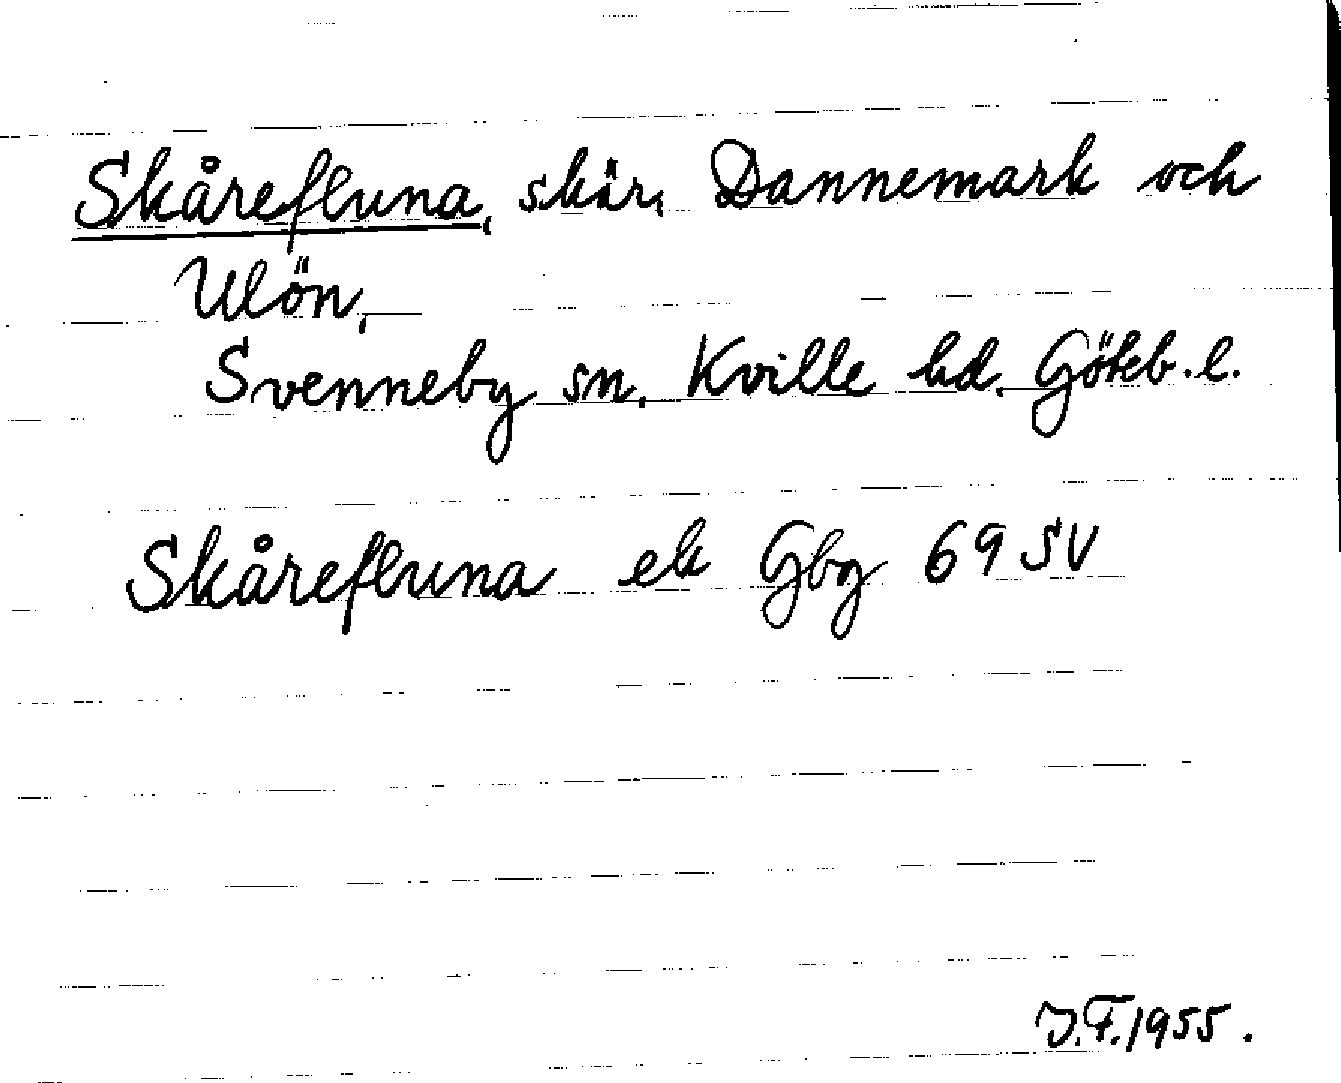 Skårefluna, skär, Dannemark och
Ulön,
Svenneby sn, Kville hd, Göteb. l.
Skårefluna ek Gbg 69 SV
J.F. 1955.